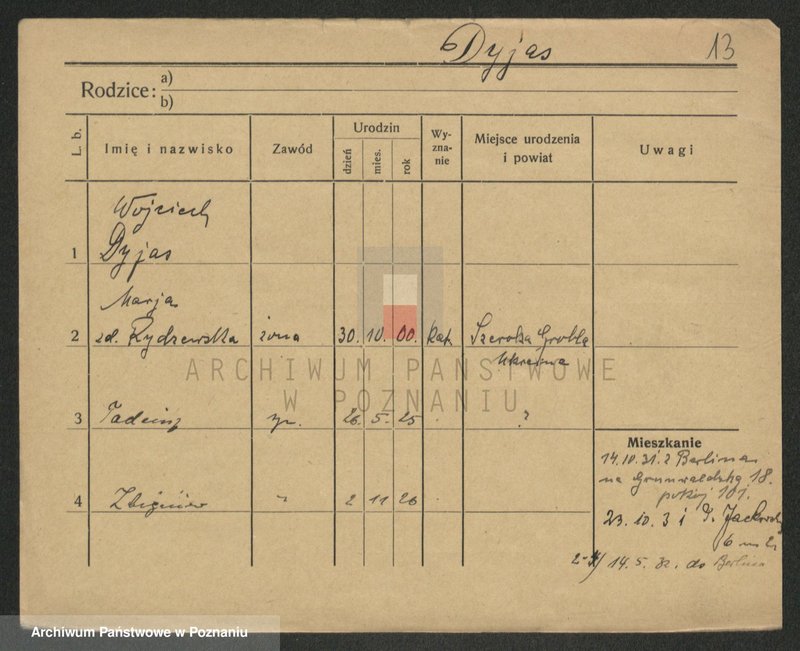 Dyjas
13
Rodzice: a)
b)
L. b.
Imię i nazwisko
Zawód
Urodzin
dzień
mies.
rok
Wy-
zna-
nie
Miejsce urodzenia
i powiat
Uwagi
Wojciech
1 Dyjas
Marja
2 zd. Rydzewska żona 30. 10. 00. kat. Szeroka Grobla
Ukraina
3 Tadeusz 26. 5. 25 ?
4 Zbigniew 2 11 26
ARCHIWUM PAŃSTWOWE
W POZNANIU
Mieszkanie
14.10.31. z Berlina
na Grunwaldzką 18.
pokój 101.
23. 10. 31
14. 5. 32. do Berlina
Archiwum Państwowe w Poznaniu